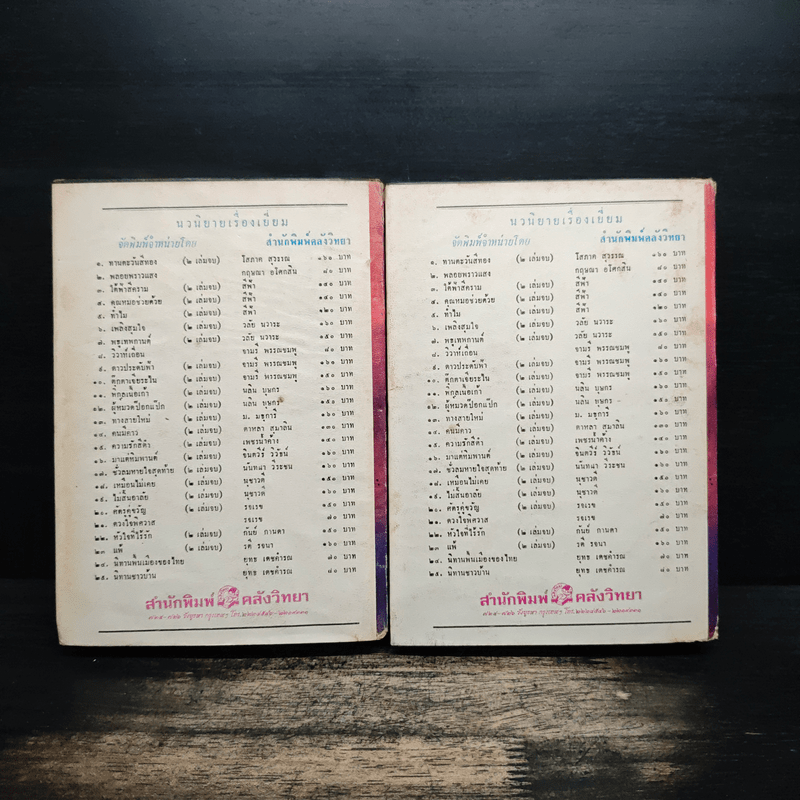 นวนิยายเรื่องเยี่ยม
จัดพิมพ์จำหน่ายโดย สำนักพิมพ์คลังวิทยา
๑. ทานตะวันสีทอง (๒ เล่มจบ) โสภาค สุวรรณ ๑๖๐ บาท
๒. พลอยพราวแสง กฤษณา อโศกสิน ๘๐ บาท
๓. ใต้ฟ้าสีคราม (๒ เล่มจบ) สีฟ้า ๑๔๐ บาท
๔. คุณหมอช่วยด้วย (๒ เล่มจบ) สีฟ้า ๑๕๐ บาท
๕. ทำไม (๒ เล่มจบ) สีฟ้า ๑๒๐ บาท
๖. เพลิงสุมใจ (๒ เล่มจบ) วลัย นวาระ ๑๖๐ บาท
๗. พรุเทพกานต์ (๒ เล่มจบ) วลัย นวาระ ๑๕๐ บาท
๘. วิวาห์เถื่อน จามรี พรรณชมพู ๘๐ บาท
๙. ดาวประดับฟ้า (๒ เล่มจบ) จามรี พรรณชมพู ๑๖๐ บาท
๑๐. ตุ๊กตาเจียระไน (๒ เล่มจบ) จามรี พรรณชมพู ๑๕๐ บาท
๑๑. พิกุลเนื้อเก้า (๒ เล่มจบ) นลิน บุษกร ๑๖๐ บาท
๑๒. ผู้หมวดป๊อกแป๊ก (๒ เล่มจบ) นลิน บุษกร ๑๕๐ บาท
๑๓. ทางสายใหม่ (๒ เล่มจบ) ม. มธุการี ๑๖๐ บาท
๑๔. คนมีคาว (๒ เล่มจบ) ดาหลา สมาลิน ๑๓๐ บาท
๑๕. ความรักสีดำ (๒ เล่มจบ) เพชรน้ำค้าง ๑๔๐ บาท
๑๖. มาแต่หิมพานต์ (๒ เล่มจบ) จินตวีร์ วิวัธน์ ๑๖๐ บาท
๑๗. ชั่วลมหายใจสุดท้าย (๒ เล่มจบ) นันทนา วีระชน ๑๖๐ บาท
๑๘. เหมือนไม่เคย (๒ เล่มจบ) นุชาวดี ๑๕๐ บาท
๑๙. ไม่สิ้นอาลัย (๒ เล่มจบ) นุชาวดี ๑๖๐ บาท
๒๐. ศัตรูคู่ขวัญ (๒ เล่มจบ) รจเรข ๑๕๐ บาท
๒๑. ดวงใจพิศวาส รจเรข ๘๐ บาท
๒๒. หัวใจที่ไร้รัก (๒ เล่มจบ) กันย์ กานดา ๑๕๐ บาท
๒๓ แพ้ (๒ เล่มจบ) รตี รจนา ๑๖๐ บาท
๒๔. นิทานพื้นเมืองของไทย ยุทธ เดชคำรณ ๗๐ บาท
๒๕. นิทานชาวบ้าน ยุทธ เดชคำรณ ๘๐ บาท
สำนักพิมพ์ คลังวิทยา
นวนิยายเรื่องเยี่ยม
จัดพิมพ์จำหน่ายโดย สำนักพิมพ์คลังวิทยา
๑. ทานตะวันสีทอง (๒ เล่มจบ) โสภาค สุวรรณ ๑๖๐ บาท
๒. พลอยพราวแสง กฤษณา อโศกสิน ๘๐ บาท
๓. ใต้ฟ้าสีคราม (๒ เล่มจบ) สีฟ้า ๑๔๐ บาท
๔. คุณหมอช่วยด้วย (๒ เล่มจบ) สีฟ้า ๑๕๐ บาท
๕. ทำไม (๒ เล่มจบ) สีฟ้า ๑๒๐ บาท
๖. เพลิงสุมใจ (๒ เล่มจบ) วลัย นวาระ ๑๖๐ บาท
๗. พรุเทพกานต์ (๒ เล่มจบ) วลัย นวาระ ๑๕๐ บาท
๘. วิวาห์เถื่อน จามรี พรรณชมพู ๘๐ บาท
๙. ดาวประดับฟ้า (๒ เล่มจบ) จามรี พรรณชมพู ๑๖๐ บาท
๑๐. ตุ๊กตาเจียระไน (๒ เล่มจบ) จามรี พรรณชมพู ๑๕๐ บาท
๑๑. พิกุลเนื้อเก้า (๒ เล่มจบ) นลิน บุษกร ๑๖๐ บาท
๑๒. ผู้หมวดป๊อกแป๊ก (๒ เล่มจบ) นลิน บุษกร ๑๕๐ บาท
๑๓. ทางสายใหม่ (๒ เล่มจบ) ม. มธุการี ๑๖๐ บาท
๑๔. คนมีคาว (๒ เล่มจบ) ดาหลา สมาลิน ๑๓๐ บาท
๑๕. ความรักสีดำ (๒ เล่มจบ) เพชรน้ำค้าง ๑๔๐ บาท
๑๖. มาแต่หิมพานต์ (๒ เล่มจบ) จินตวีร์ วิวัธน์ ๑๖๐ บาท
๑๗. ชั่วลมหายใจสุดท้าย (๒ เล่มจบ) นันทนา วีระชน ๑๖๐ บาท
๑๘. เหมือนไม่เคย (๒ เล่มจบ) นุชาวดี ๑๕๐ บาท
๑๙. ไม่สิ้นอาลัย (๒ เล่มจบ) นุชาวดี ๑๖๐ บาท
๒๐. ศัตรูคู่ขวัญ (๒ เล่มจบ) รจเรข ๑๕๐ บาท
๒๑. ดวงใจพิศวาส รจเรข ๘๐ บาท
๒๒. หัวใจที่ไร้รัก (๒ เล่มจบ) กันย์ กานดา ๑๕๐ บาท
๒๓ แพ้ (๒ เล่มจบ) รตี รจนา ๑๖๐ บาท
๒๔. นิทานพื้นเมืองของไทย ยุทธ เดชคำรณ ๗๐ บาท
๒๕. นิทานชาวบ้าน ยุทธ เดชคำรณ ๘๐ บาท
สำนักพิมพ์ คลังวิทยา